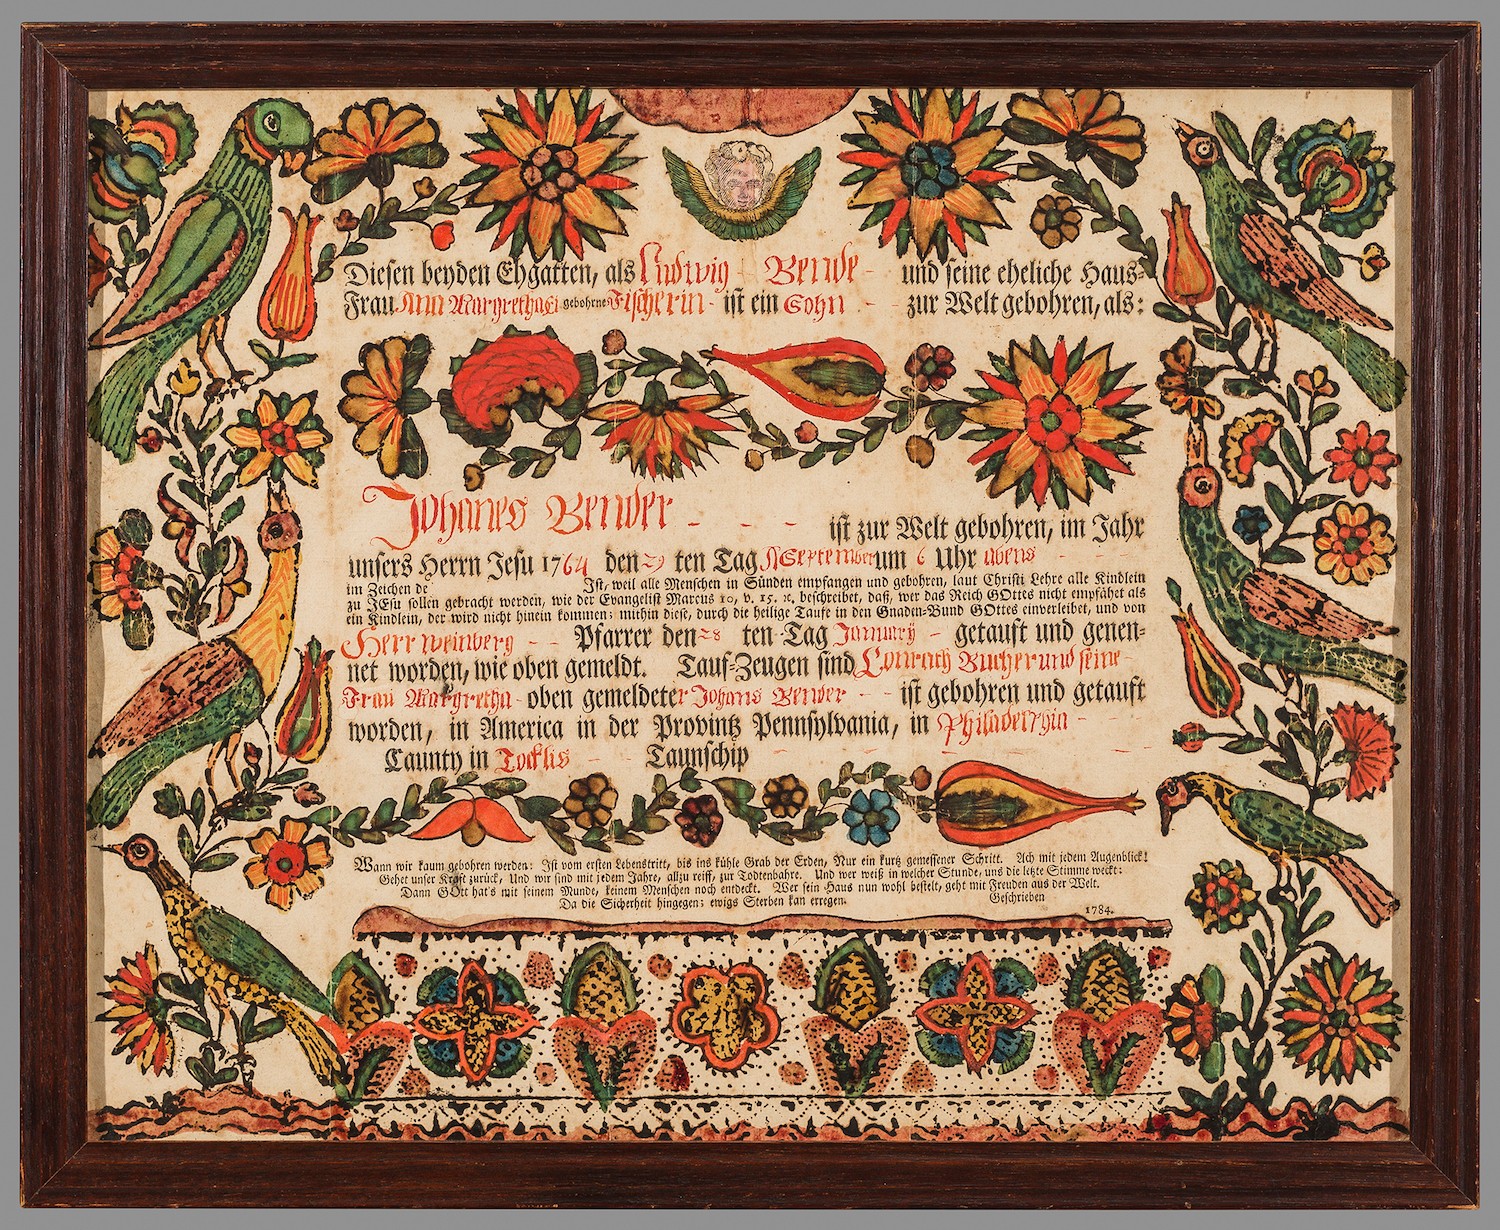 Diesen beyden Ehgatten, als Ludwig Bende und seine eheliche Haus-
Frau Ann Margretha gebohrne Fischerin ist ein Sohn zur Welt gebohren, als:
Johanes Bender ist zur Welt gebohren, im Jahr
unsers Herrn Jesu 1764 den 29 ten Tag September um 6 Uhr abens
im Zeichen de Ist, weil alle Menschen in Sünden empfangen und gebohren, laut Christi Lehre alle Kindlein
zu JEsu sollen gebracht werden, wie der Evangelist Marcus 10, v. 15. ꝛc. beschreibet, daß, wer das Reich GOttes nicht empfähet als
ein Kindlein, der wird nicht hinein kommen; mithin diese, durch die heilige Taufe in den Gnaden-Bund GOttes einverleibet, und von
Herr weinberg Pfarrer den 28 ten Tag January getauft und genen-
net worden, wie oben gemeldt. Tauf-Zeugen sind Conrath Bucher und seine
Frau Margretha oben gemeldeter Johans Bender ist gebohren und getauft
worden, in America in der Provintz Pennsylvania, in Philadelphia
Caunty in Taunschip
Wann wir kaum gebohren werden: Ist vom ersten Lebenstritt, bis ins kühle Grab der Erden, Nur ein kurtz gemessener Schritt. Ach mit jedem Augenblick!
Gehet unser Kraft zurück, Und wir sind mit jedem Jahre, allzu reiff, zur Todtenbahre. Und wer weiß in welcher Stunde, uns die letzte Stimme weckt:
Dann GOtt hat's mit seinem Munde, keinem Menschen noch entdeckt. Wer sein Haus nun wohl bestelt, geht mit Freuden aus der Welt.
Da die Sicherheit hingegen; ewigs Sterben kan erregen. Geschrieben
1784.